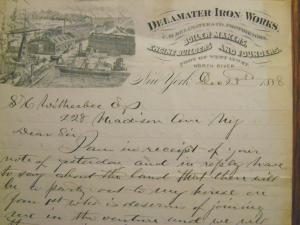 DELAMATER IRON WORKS,
C.H. DELAMATER & CO. PROPRIETORS,
BOILER MAKERS,
ENGINE BUILDERS AND FOUNDERS.
FOOT OF WEST 13TH ST.
NORTH RIVER.
New York, Dec 188
Witherbee Esq
228 Madison Ave NY
Dear Sir
I am in receipt of your
note of yesterday and in reply have
to say about the land that there will
be a party out to my house on
Jan 1st who is desirous of joining
me in the venture and we will